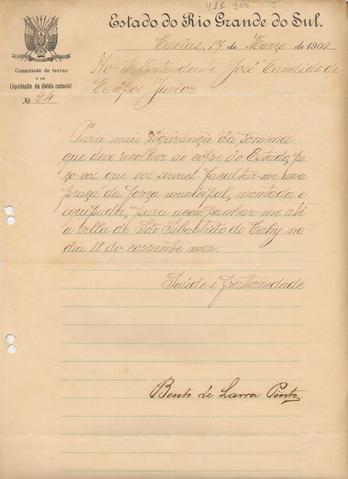 Estado do Rio Grande do Sul.
Commissão de terras
e da
Liquidação da divida colonial
Nº 24
Caxias, 17 de Março de 1904
Ao Sr. Intendente José Candido de
Campos Junior
Para mais segurança da somma
que devo recolher ao cofre do Estado, pe-
ço-vos que vos serveis facultar-me uma
praça da força municipal, montada e
equipada, para acompanhar-me até
a villa de São Sebastião do Cahy no
dia 18 do corrente mez.
Saúde e fraternidade
Bento de Lavra Pinto